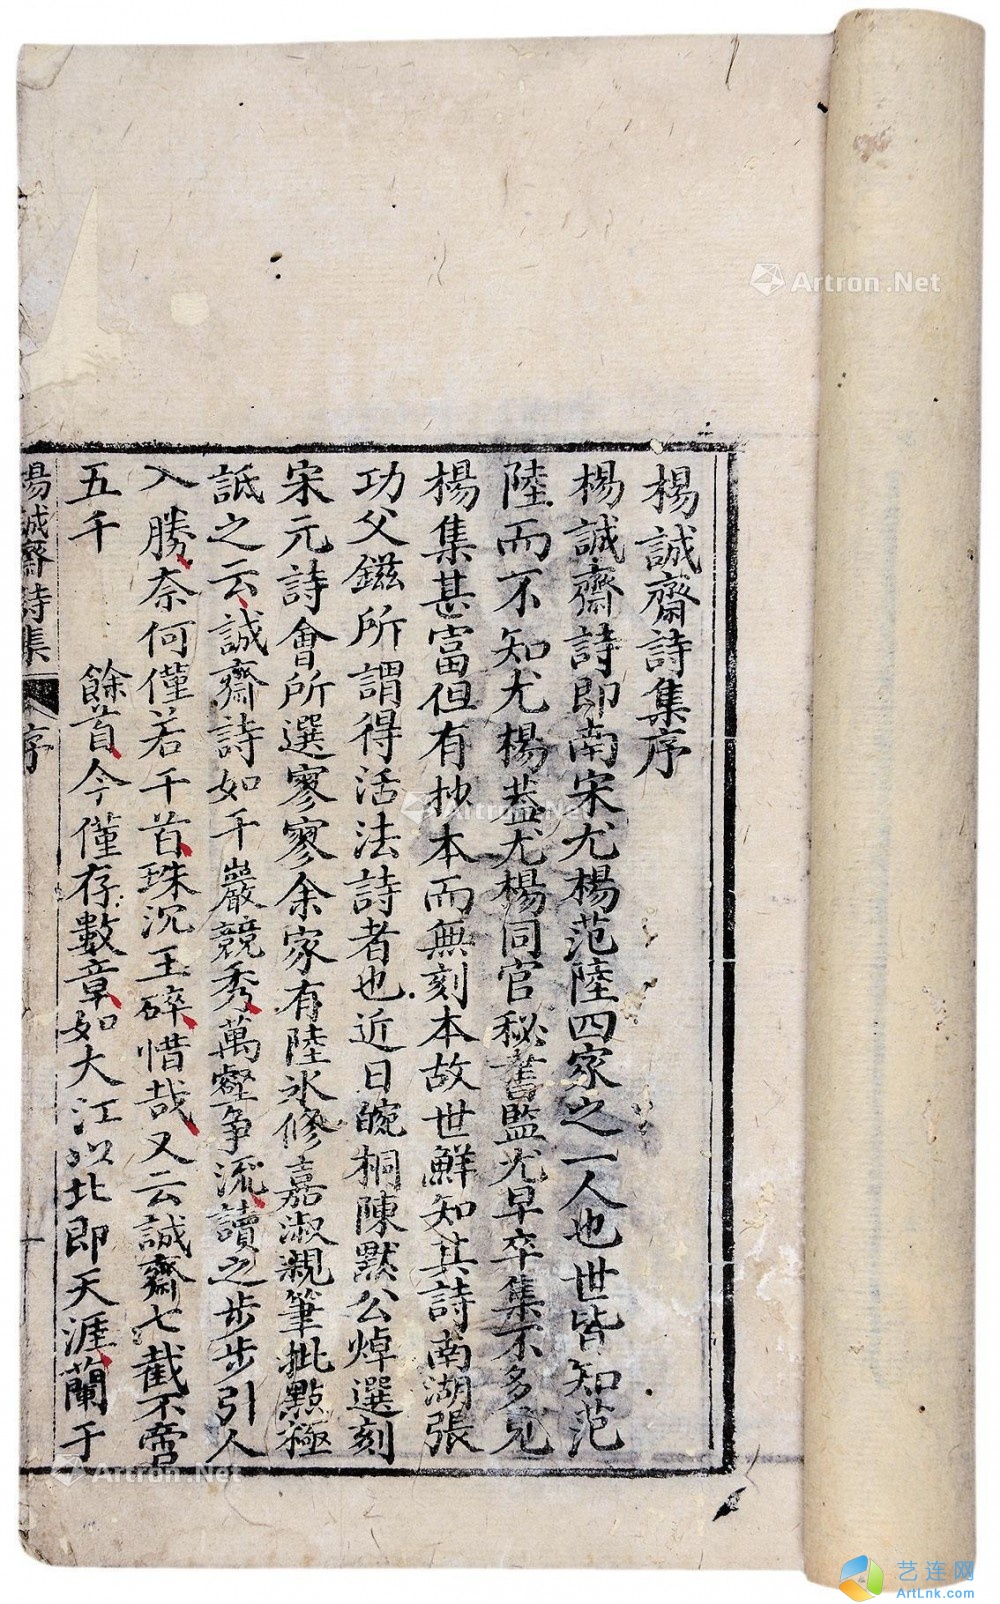 楊誠齋詩集序
楊誠齋詩即南宋尤楊范陸四家之一人也世皆知范
陸而不知尤楊葢尤楊同官秘書監尤早卒集不多見
楊集甚富但有抄本而無刻本故世鮮知其詩南湖張
功父鎡所謂得活法詩者也近日皖桐陳默公焯選刻
宋元詩會所選寥寥余家有陸氷修嘉淑親筆批點極
詆之云誠齋詩如千巖競秀萬壑爭流讀之步步引人
入勝奈何僅若干首珠沉玉碎惜哉又云誠齋七截不啻
五千餘首今僅存數章如大江以北即天涯蘭于
楊誠齋詩集 序
Artron.Net
Artron.Net
Artron.Net
艺连网
ArtLnk.com